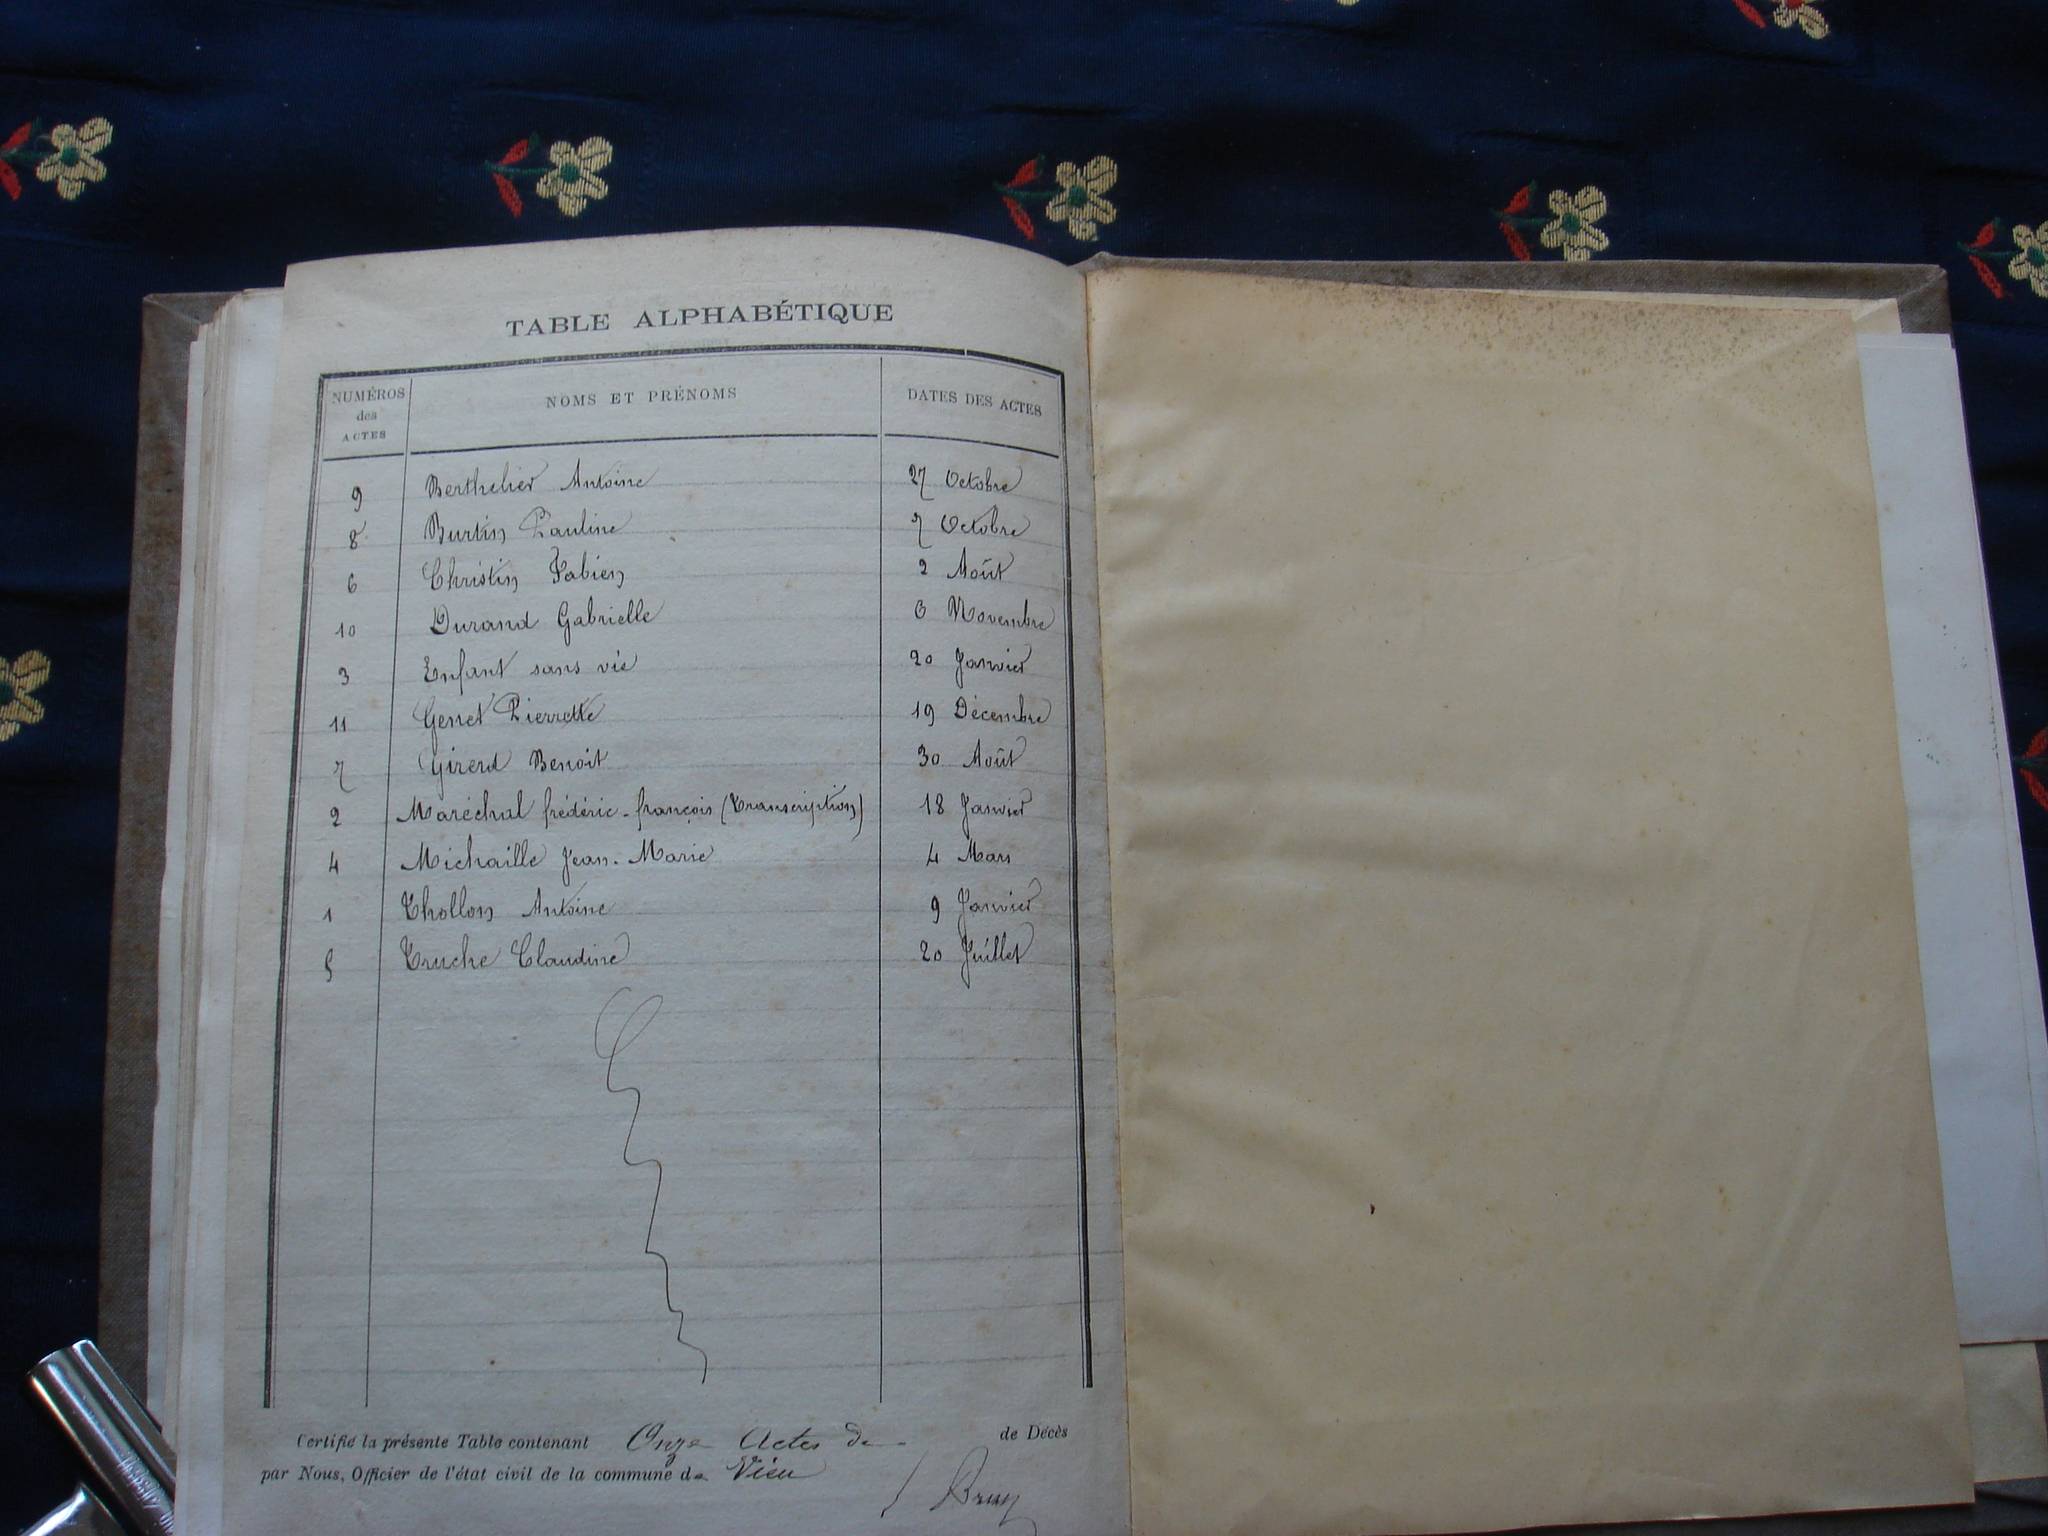 TABLE ALPHABÉTIQUE
NUMÉROS des ACTES NOMS ET PRÉNOMS DATES DES ACTES
9 Berthelier Antoine 27 Octobre
8 Burtin Pauline 7 Octobre
6 Christin Fabien 2 Août
10 Durand Gabrielle 6 Novembre
3 Enfant sans vie 20 Janvier
11 Genet Pierrette 19 Décembre
7 Girerd Benoit 30 Août
2 Maréchal frédéric-françois (Transcription) 18 Janvier
4 Michaille Jean-Marie 4 Mars
1 Thollon Antoine 9 Janvier
5 Truche Claudine 20 Juillet
Certifié la présente Table contenant Onze Actes de de Décès
par Nous, Officier de l'état civil de la commune de Vieu